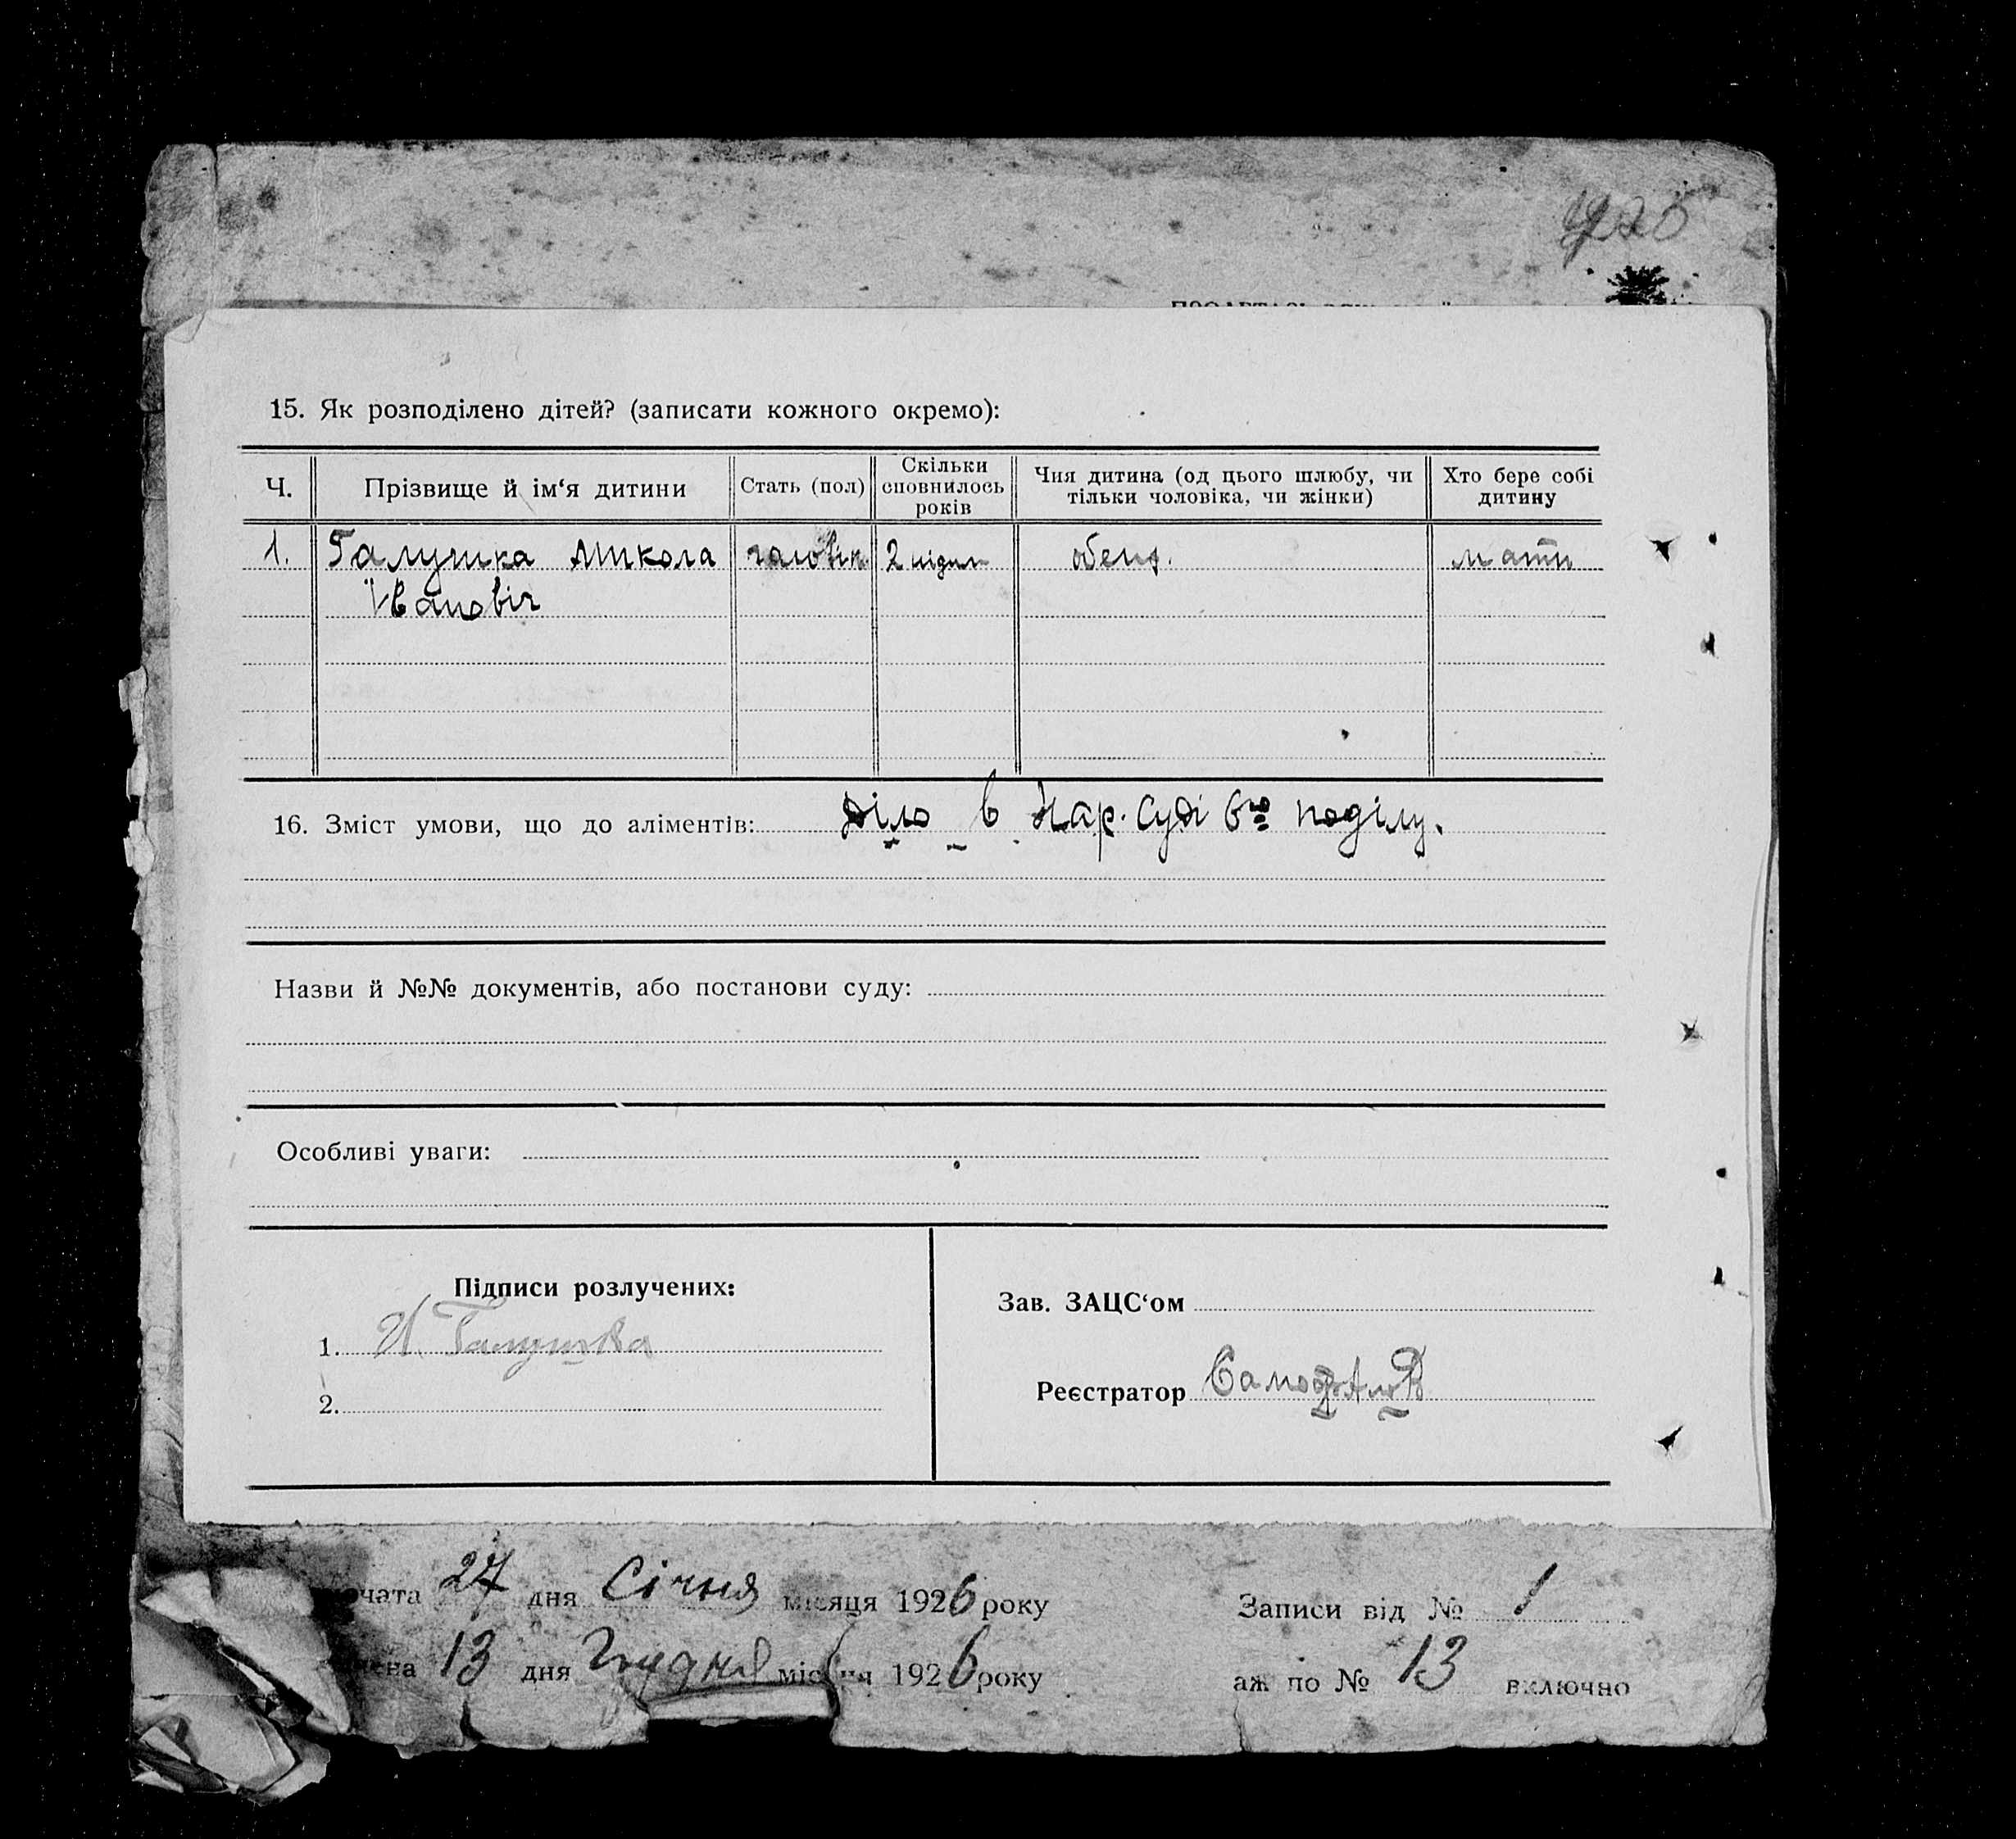 15. Як розподілено дітей? (записати кожного окремо):
Ч. Прізвище й ім‘я дитини Стать (пол) Скільки сповнилось років Чия дитина (од цього шлюбу, чи тільки чоловіка, чи жінки) Хто бере собі дитину
1. Галушка Микола 2 мати
Івановіч
16. Зміст умови, що до аліментів: Діло в Нар. Суді 6го поділу.
Назви й №№ документів, або постанови суду:
Особливі уваги:
Підписи розлучених:
1. И. Галушка
2.
Зав. ЗАЦС‘ом
Реєстратор
чата 27 дня Січня місяця 1926 року
13 дня Грудня місяця 1926 року
Записи від № 1
аж по № 13 включно